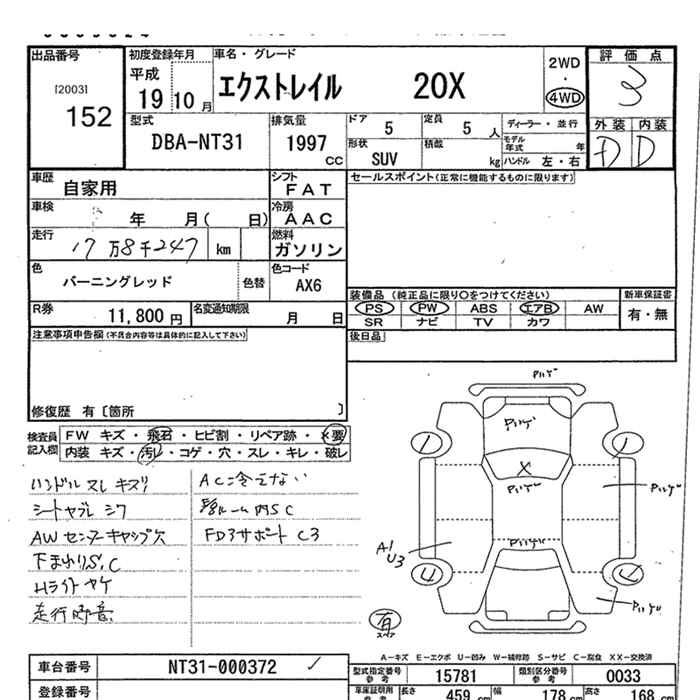 出品番号 初度登録年月 車名・グレード 2WD・4WD 評価点
[2003] 152 平成 19 10月 エクストレイル 20X 3
型式 排気量 ドア 5 定員 5人 ディーラー・並行 外装 内装
DBA-NT31 1997 CC 形状 SUV 積載 kg モデル年式 年 ハンドル 左・右 D D
車歴 自家用 シフト FAT セールスポイント(正常に機能するものに限ります)
車検 年 月( 日) 冷房 AAC
走行 17万8千247 km 燃料 ガソリン
色 バーニングレッド 色替 色コード AX6
装備品 (純正品に限り○をつけてください) 新車保証書
R券 11,800円 名変通知期限 月 日 PS PW ABS エアB AW 有・無
SR ナビ TV カワ
注意事項申告欄(不具合内容等は具体的に記入して下さい) 後日品
修復歴 有〔箇所 〕
検査員記入欄 FW キズ・飛石・ヒビ割・リペア跡・×要
内装 キズ・汚レ・コゲ・穴・スレ・キレ・破レ
ハンドルスレキズリ
シートヤブレ シワ
AWセンターキャップ欠
下まわりS,C
Hライトヤケ
走行時音
AC
内SC
FD3サポート C3
Pハゲ
Pハゲ
1 1
X
Pハゲ Pハゲ
Pハゲ
A1
U3
4
Pハゲ
有
A-キズ E-エクボ U-凹み W-補修跡 S-サビ C-腐食 XX-交換済
車台番号 NT31-000372 型式指定番号 参考 15781 類別区分番号 参考 0033
登録番号 車庫証明用 参考 長さ 459 cm 幅 178 cm 高さ 168 cm